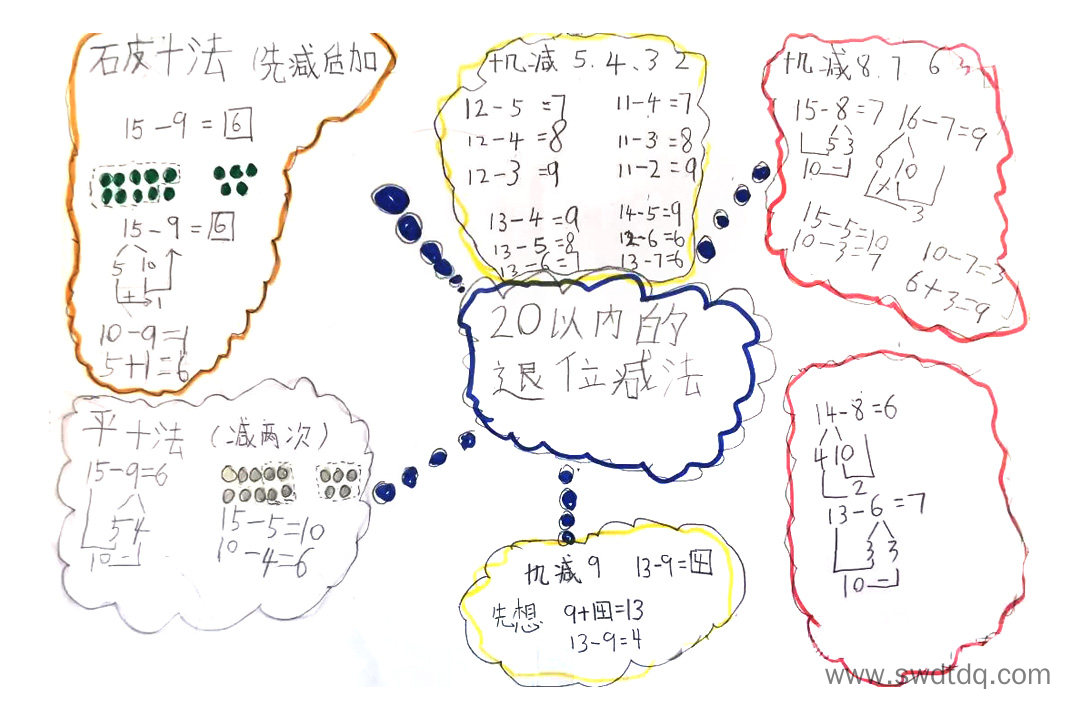 石皮十法（先减后加
15-9=6
15-9=6
5 10
+ 1
10-9=1
5+1=6
十几减5.4.3 2
12-5=7 11-4=7
12-4=8 11-3=8
12-3=9 11-2=9
13-4=9 14-5=9
13-5=8 12-6=6
13-6=7 13-7=6
十几减8.7 6
15-8=7 16-7=9
5 3 6 10
10- + 3
15-5=10
10-3=7
10-7=3
6+3=9
20以内的
退位减法
平十法（减两次）
15-9=6
5 4
10-
15-5=10
10-4=6
十几减9 13-9=4
先想 9+4=13
13-9=4
14-8=6
4 10
2
13-6=7
3 3
10-
www.swdtdq.com